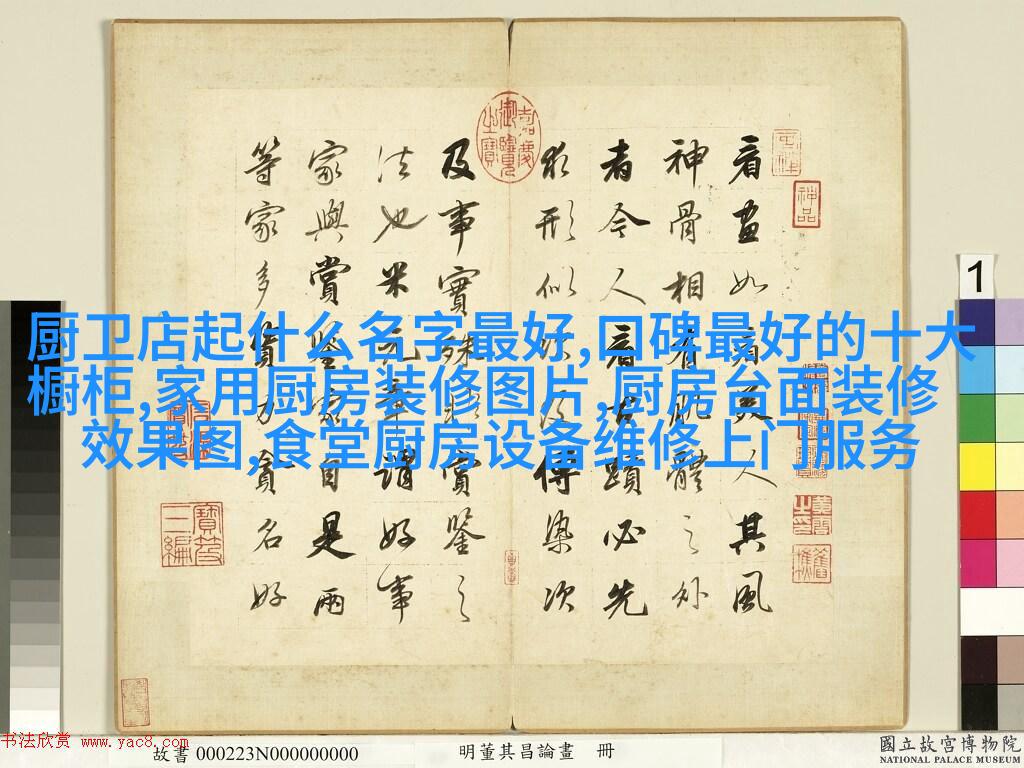 厨卫店起什么名字最好,口碑最好的十大
橱柜,家用厨房装修图片,厨房台面装修
效果图,食堂厨房设备维修上门服务
看畫如看美人其風
神骨相有肌體之外
者今人看古蹟必先
求形似次及傳染次
及事實殊非賞鑒之
法也米元章謂好事
家與賞鑒家自是兩
等家多資力貪名好
嘉慶御覽之寶
神品
寶笈三編
1
书法欣赏 www.yac8.com
故書 000223N000000000
明董其昌論畫 冊
國立故宮博物院
NATIONAL PALACE MUSEUM